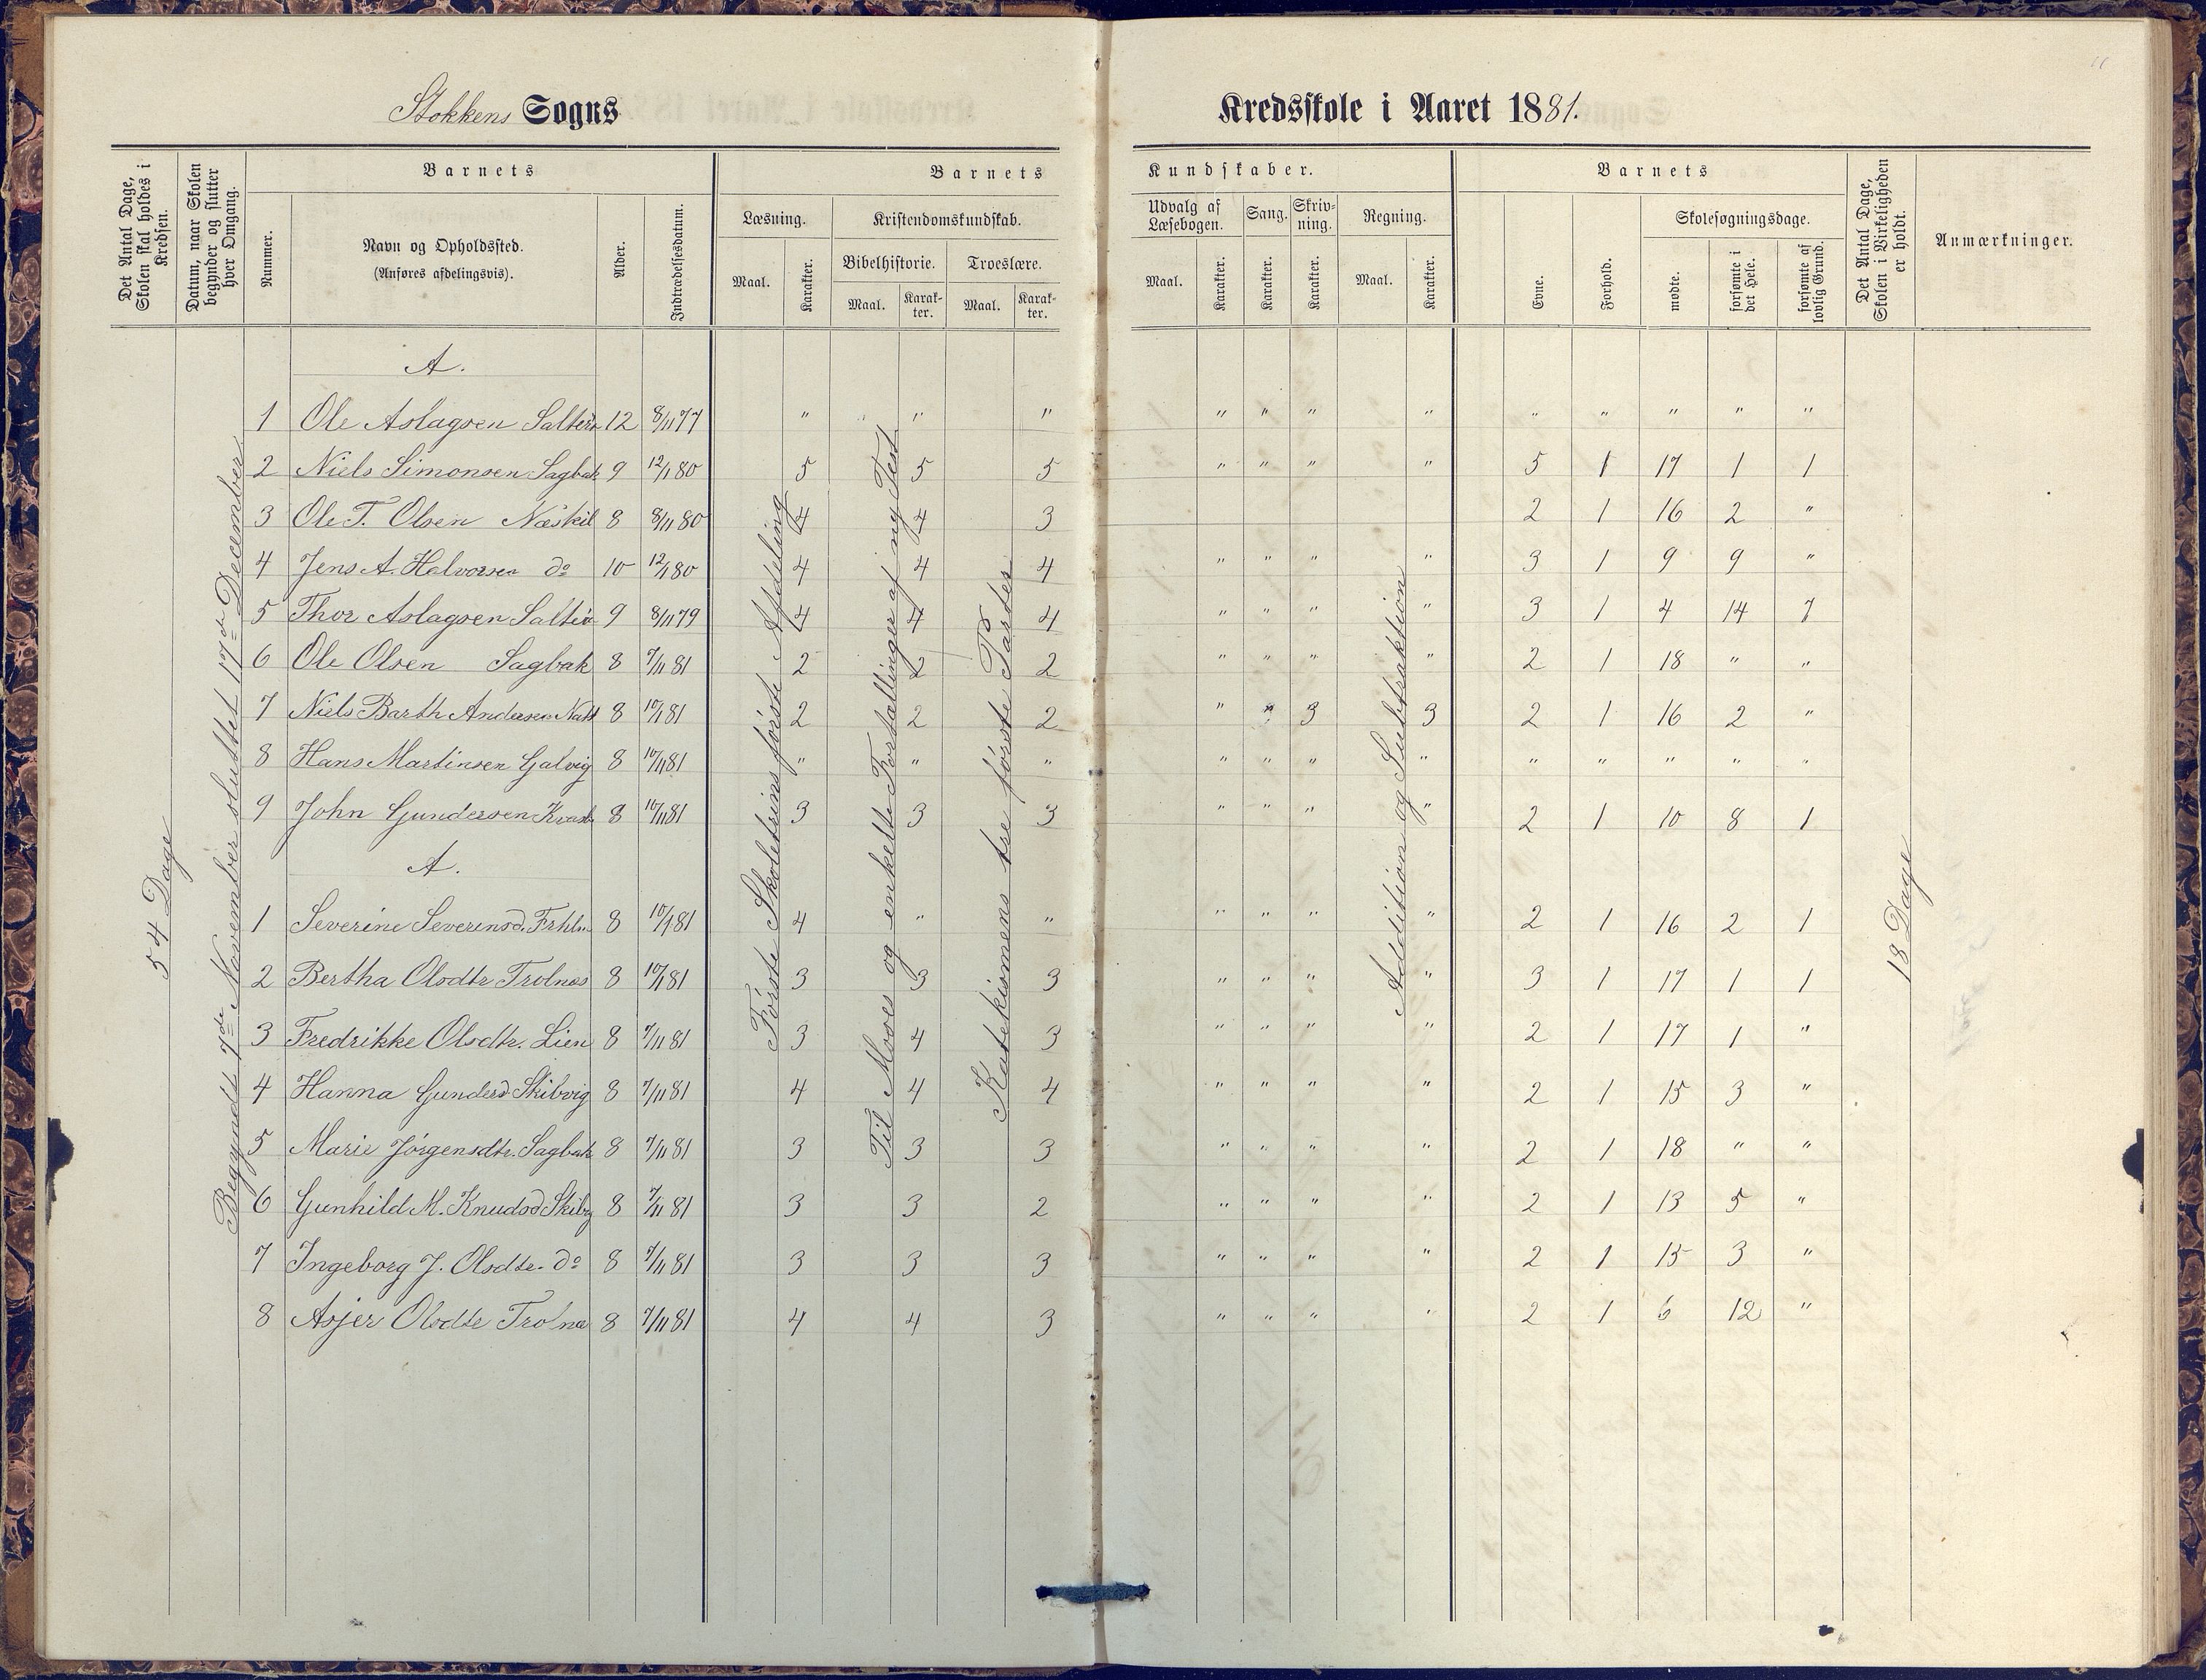 Stokkens Sogns Kredsskole i Aaret 1881.
Det Antal Dage, Skolen skal holdes i Kredsen.
Datum, naar Skolen begynder og slutter hver Omgang.
Barnets
Nummer.
Navn og Opholdssted.
(Anføres afdelingsvis).
Alder.
Indtrædelsesdatum.
Barnets Kundskaber.
Læsning.
Maal.
Karakter.
Kristendomskundskab.
Bibelhistorie.
Maal.
Karak-ter.
Troeslære.
Maal.
Karak-ter.
Udvalg af Læsebogen.
Maal.
Karakter.
Sang.
Karakter.
Skriv-ning.
Karakter.
Regning.
Maal.
Karakter.
Barnets
Evne.
Forhold.
Skolesøgningsdage.
mødte.
forsømte i det Hele.
forsømte af lovlig Grund.
Det Antal Dage, Skolen i Virkeligheden er holdt.
Anmærkninger.
54 Dage
Begyndt 7de November sluttet 17de December
Første Skoletrins første Afdeling
Til Moses og enkelte Fortællinger af ny Test
Katekismens tre første Parter
Addition og Subtraktion
18 Dage
A.
1 Ole Aslagsen 12 8/11 77 " " " " " " " " " " " "
2 Niels Simonsen Sagbak 9 12/1 80 5 5 5 " " " " 5 1 17 1 1
3 Ole T. Olsen Næskil 8 8/11 80 4 4 3 2 1 16 2 "
4 Jens A. Halvorsen do 10 12/1 80 4 4 4 " " " " 3 1 9 9 "
5 Thor Aslagsen 9 8/11 79 4 4 4 " " " " 3 1 4 14 7
6 Ole Olsen Sagbak 8 7/11 81 2 2 2 " " " " 2 1 18 " "
7 Niels Barth Andersen 8 10/1 81 2 2 2 " " 3 3 2 1 16 2 "
8 Hans Martinsen Galvig 8 10/11 81 " " " " " " " " " " " "
9 John Gundersen 8 10/11 81 3 3 3 " " " " 2 1 10 8 1
A.
1 Severine Severinsd. 8 10/1 81 4 " " " " " " 2 1 16 2 1
2 Bertha Olsdtr Trolnes 8 10/1 81 3 3 3 " " " " 3 1 17 1 1
3 Fredrikke Olsdtr. Lien 8 7/11 81 3 4 3 " " " " 2 1 17 1 "
4 Hanna Gundersd Skibvig 8 7/11 81 4 4 4 " " " " 2 1 15 3 "
5 Marie Jørgensdtr. Sagbak 8 7/11 81 3 3 3 " " " " 2 1 18 " "
6 Gunhild M. Knudsd Skibvg 8 7/11 81 3 3 2 " " " " 2 1 13 5 "
7 Ingeborg J. Olsdtr. do 8 7/11 81 3 3 3 " " " " 2 1 15 3 "
8 Asjer Olsdtr Trolne 8 7/11 81 4 4 3 " " " " 2 1 6 12 "